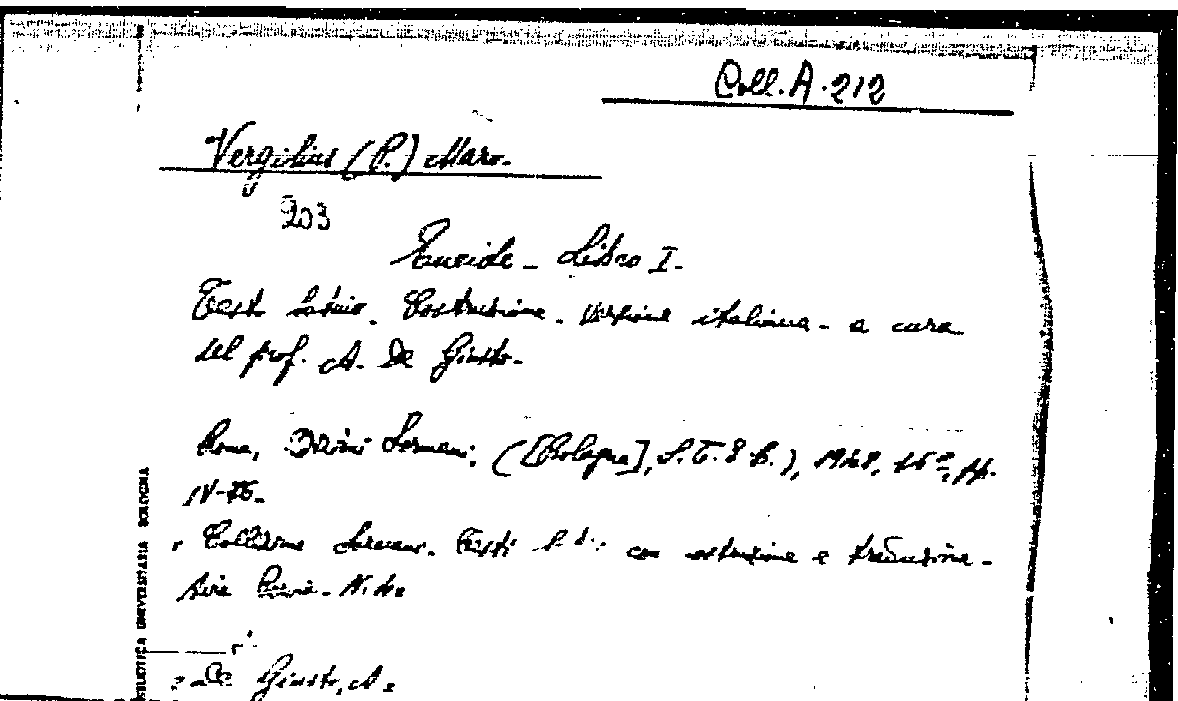 Coll. A. 212
Vergilius (P.) Maro.
203
Eneide - Libro I.
Testo latino. Costruzione. Versione italiana - a cura
del prof. A. De Giusto.
Roma, ([Bologna], S.T.E.B.), 1948, 16°, pp.
IV-76.
Collezione con costruzione e traduzione.
Serie N.
De Giusto, A.
BIBLIOTECA UNIVERSITARIA BOLOGNA